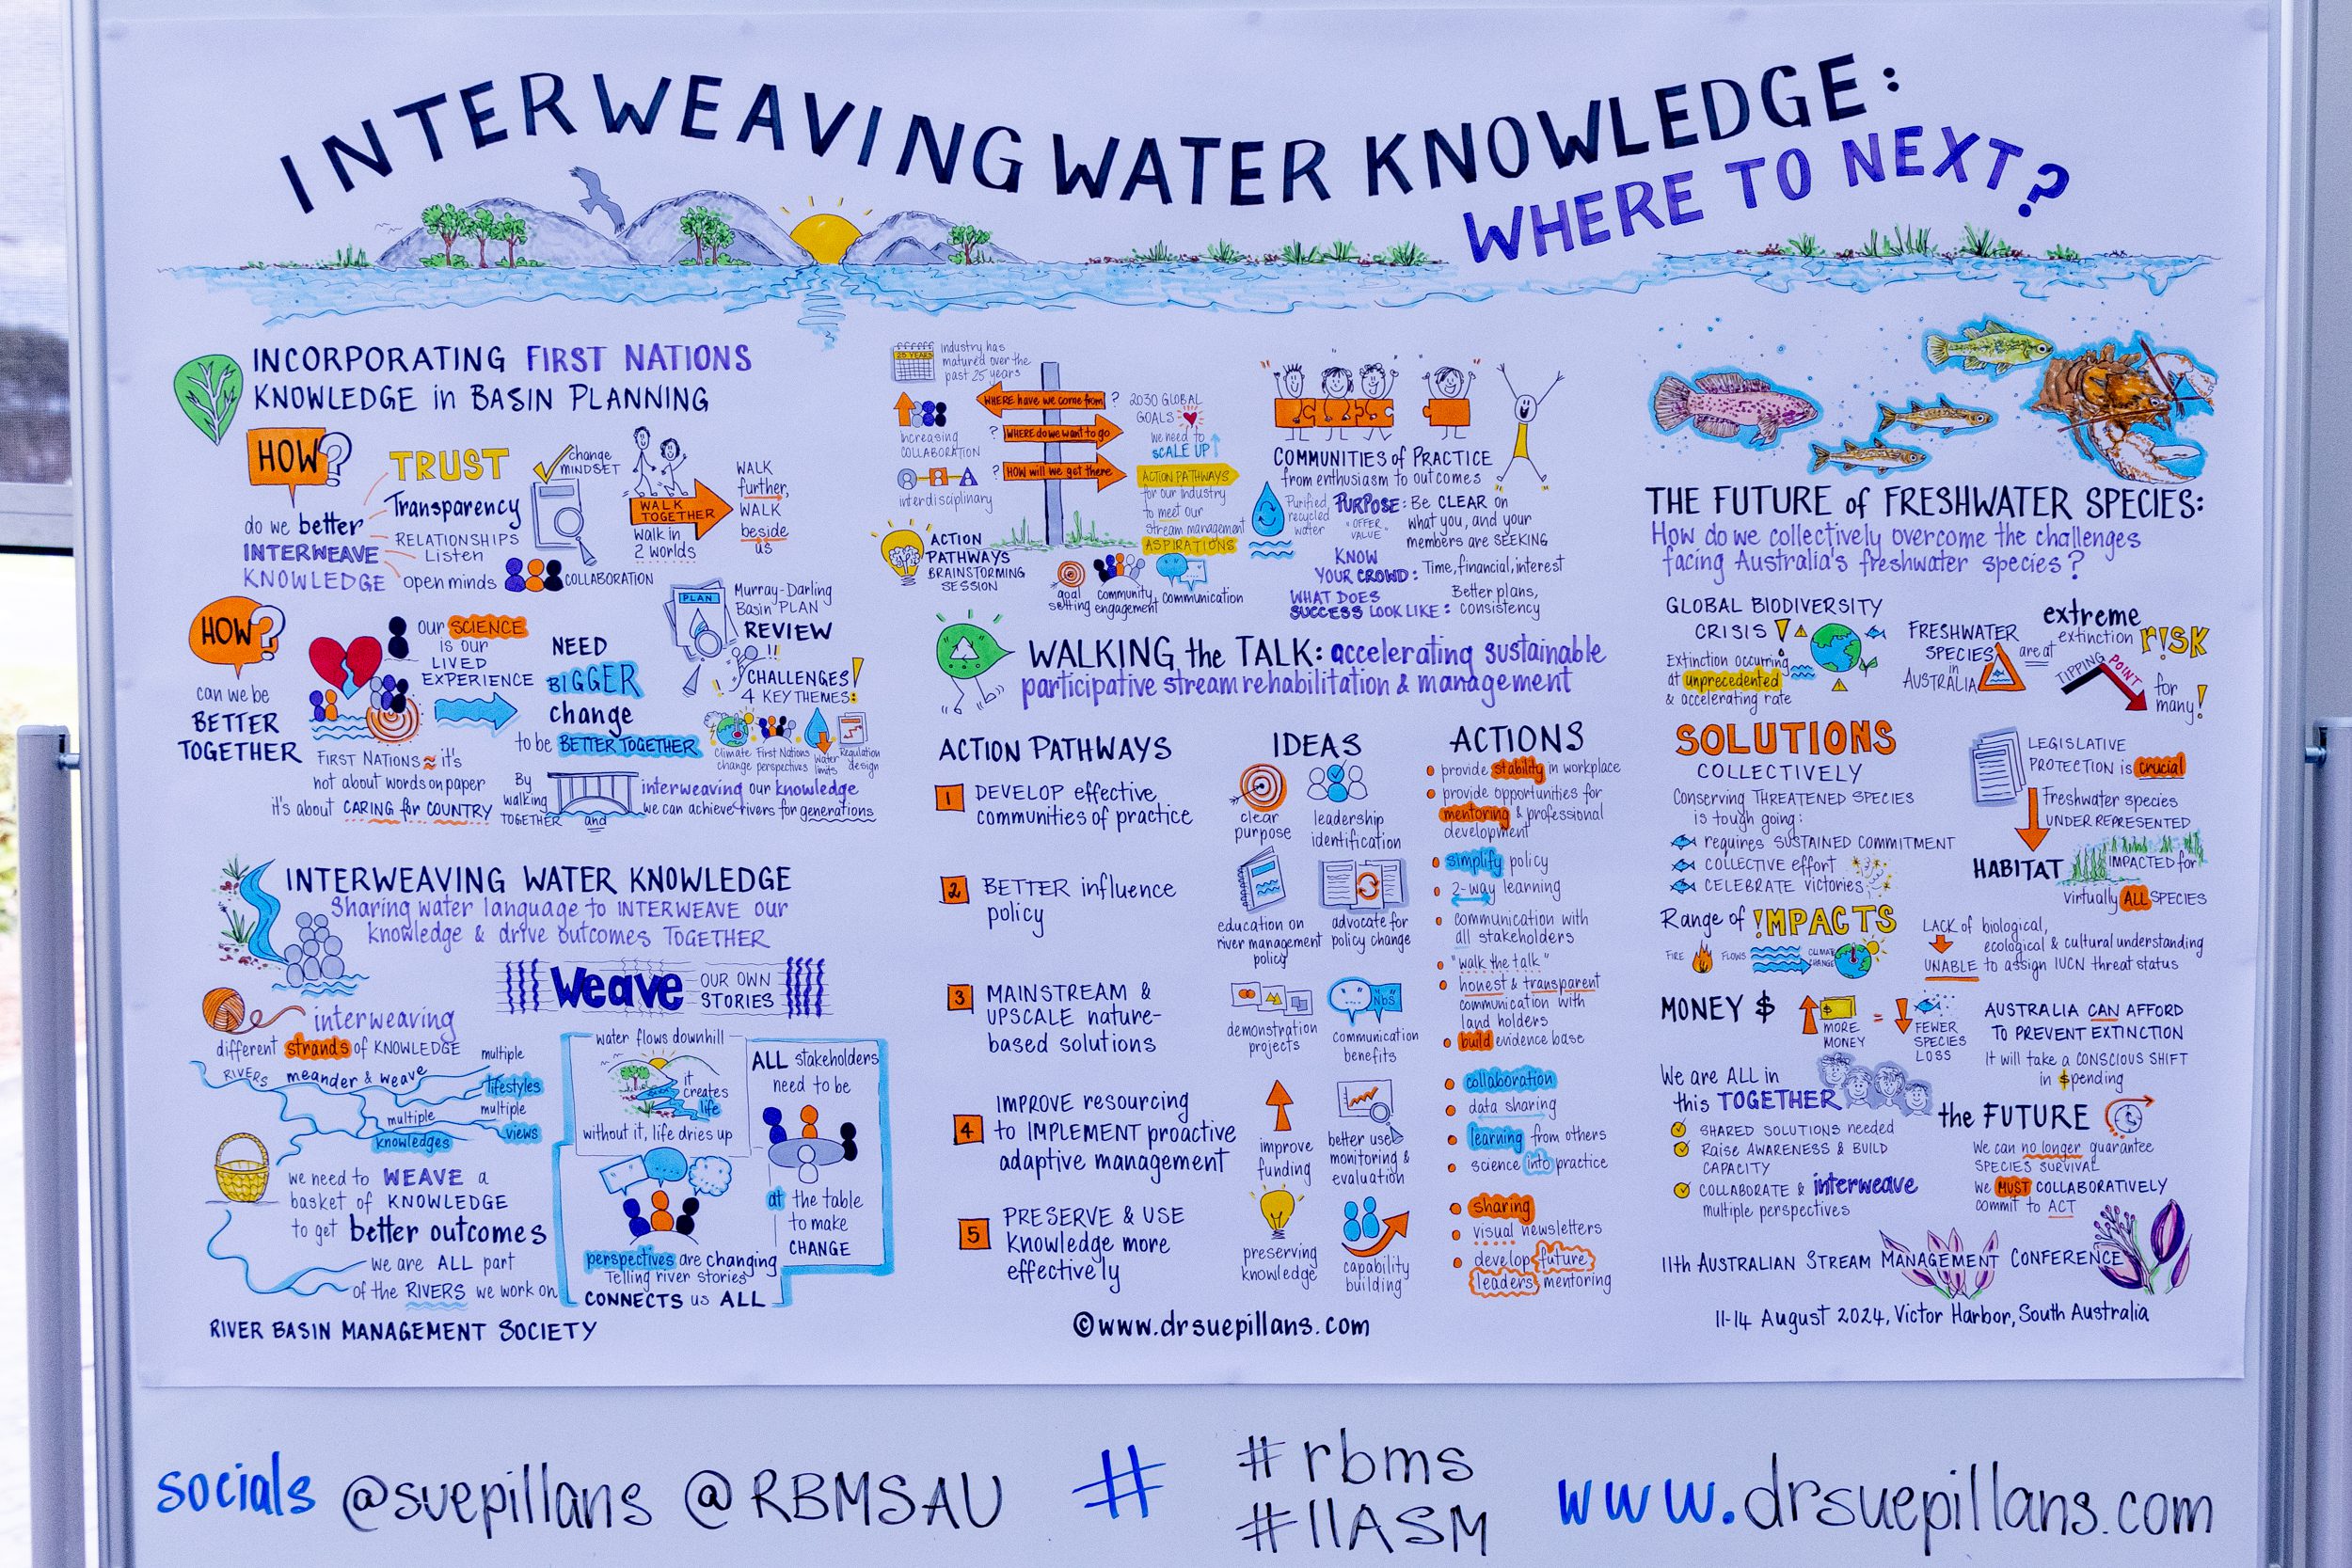 INTERWEAVING WATER KNOWLEDGE:
WHERE TO NEXT?
INCORPORATING FIRST NATIONS
KNOWLEDGE in BASIN PLANNING
HOW?
do we better
INTERWEAVE
KNOWLEDGE
TRUST
Transparency
RELATIONSHIPS
Listen
open minds
COLLABORATION
change
MINDSET
WALK
TOGETHER
walk in
2 worlds
WALK
further,
WALK
beside
us
HOW?
can we be
BETTER
TOGETHER
our SCIENCE
is our
LIVED
EXPERIENCE
FIRST NATIONS ≈ it's
not about words on paper
it's about CARING for COUNTRY
NEED
BIGGER
change
to be BETTER TOGETHER
PLAN
Murray-Darling
Basin PLAN
REVIEW
!!
CHALLENGES!
4 KEY THEMES:
Climate
change
First Nations
perspectives
water
limits
Regulation
design
By
walking
TOGETHER
and
interweaving our knowledge
we can achieve rivers for generations
INTERWEAVING WATER KNOWLEDGE
Sharing water language to INTERWEAVE our
knowledge & drive outcomes TOGETHER
Weave
OUR OWN
STORIES
interweaving
different strands of KNOWLEDGE
RIVERS meander & weave
multiple
lifestyles
multiple
knowledges
multiple
views
we need to WEAVE a
basket of KNOWLEDGE
to get better outcomes
we are ALL part
of the RIVERS we work on
water flows downhill
it
creates
life
without it, life dries up
perspectives are changing
Telling river stories
CONNECTS us ALL
ALL stakeholders
need to be
at the table
to make
CHANGE
RIVER BASIN MANAGEMENT SOCIETY
25 YEARS
Industry has
matured over the
past 25 years
increasing
COLLABORATION
interdisciplinary
WHERE have we come from ?
? WHERE do we want to go
? HOW will we get there
2030 GLOBAL
GOALS
we need to
SCALE UP
ACTION PATHWAYS
for our industry
to meet our
stream management
ASPIRATIONS
ACTION
PATHWAYS
BRAINSTORMING
SESSION
goal
setting
community
engagement
communication
COMMUNITIES of PRACTICE
from enthusiasm to outcomes
Purified
recycled
water
PURPOSE:
"OFFER
VALUE"
Be CLEAR on
what you, and your
members are SEEKING
KNOW
YOUR CROWD: Time, financial, interest
WHAT DOES
SUCCESS LOOK LIKE:
Better plans,
consistency
WALKING the TALK: accelerating sustainable
participative stream rehabilitation & management
ACTION PATHWAYS
IDEAS
ACTIONS
1 DEVELOP effective
communities of practice
clear
purpose
leadership
identification
provide stability in workplace
provide opportunities for
mentoring & professional
development
2 BETTER influence
policy
education on
river management
policy
advocate for
policy change
simplify policy
2-way learning
communication with
all stakeholders
"walk the talk"
3 MAINSTREAM &
UPSCALE nature-
based solutions
demonstration
projects
NbS
communication
benefits
honest & transparent
communication with
land holders
build evidence base
4 IMPROVE resourcing
to IMPLEMENT proactive
adaptive management
improve
funding
better use
monitoring &
evaluation
collaboration
data sharing
learning from others
science into practice
5 PRESERVE & USE
knowledge more
effectively
preserving
knowledge
capability
building
sharing
visual newsletters
develop future
leaders mentoring
©www.drsuepillans.com
THE FUTURE of FRESHWATER SPECIES:
How do we collectively overcome the challenges
facing Australia's freshwater species?
GLOBAL BIODIVERSITY
CRISIS!
Extinction occurring
at unprecedented
& accelerating rate
FRESHWATER
SPECIES
in
AUSTRALIA
are at
extreme
extinction r!sk
TIPPING POINT
for
many!
SOLUTIONS
COLLECTIVELY
Conserving THREATENED SPECIES
is tough going:
requires SUSTAINED COMMITMENT
COLLECTIVE effort
CELEBRATE victories
LEGISLATIVE
PROTECTION is crucial
Freshwater species
UNDER REPRESENTED
HABITAT
IMPACTED for
virtually ALL SPECIES
Range of !MPACTS
FIRE
FLOWS
CLIMATE
CHANGE
LACK of biological,
ecological & cultural understanding
UNABLE to assign IUCN threat status
MONEY $
$
MORE
MONEY
=
FEWER
SPECIES
LOSS
AUSTRALIA CAN AFFORD
TO PREVENT EXTINCTION
It will take a CONSCIOUS SHIFT
in $pending
We are ALL in
this TOGETHER
SHARED SOLUTIONS needed
Raise AWARENESS & BUILD
CAPACITY
COLLABORATE & interweave
multiple perspectives
the FUTURE
We can no longer guarantee
SPECIES SURVIVAL
We MUST COLLABORATIVELY
commit to ACT
11th AUSTRALIAN STREAM MANAGEMENT CONFERENCE
11-14 August 2024, Victor Harbor, South Australia
socials @suepillans @RBMSAU # #rbms
#11ASM
www.drsuepillans.com